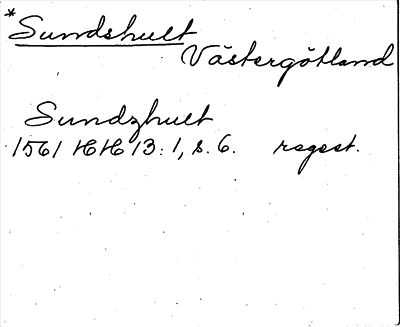 *Sundshult
Västergötland
Sundzhult
1561 HH 13:1, s. 6. regest.